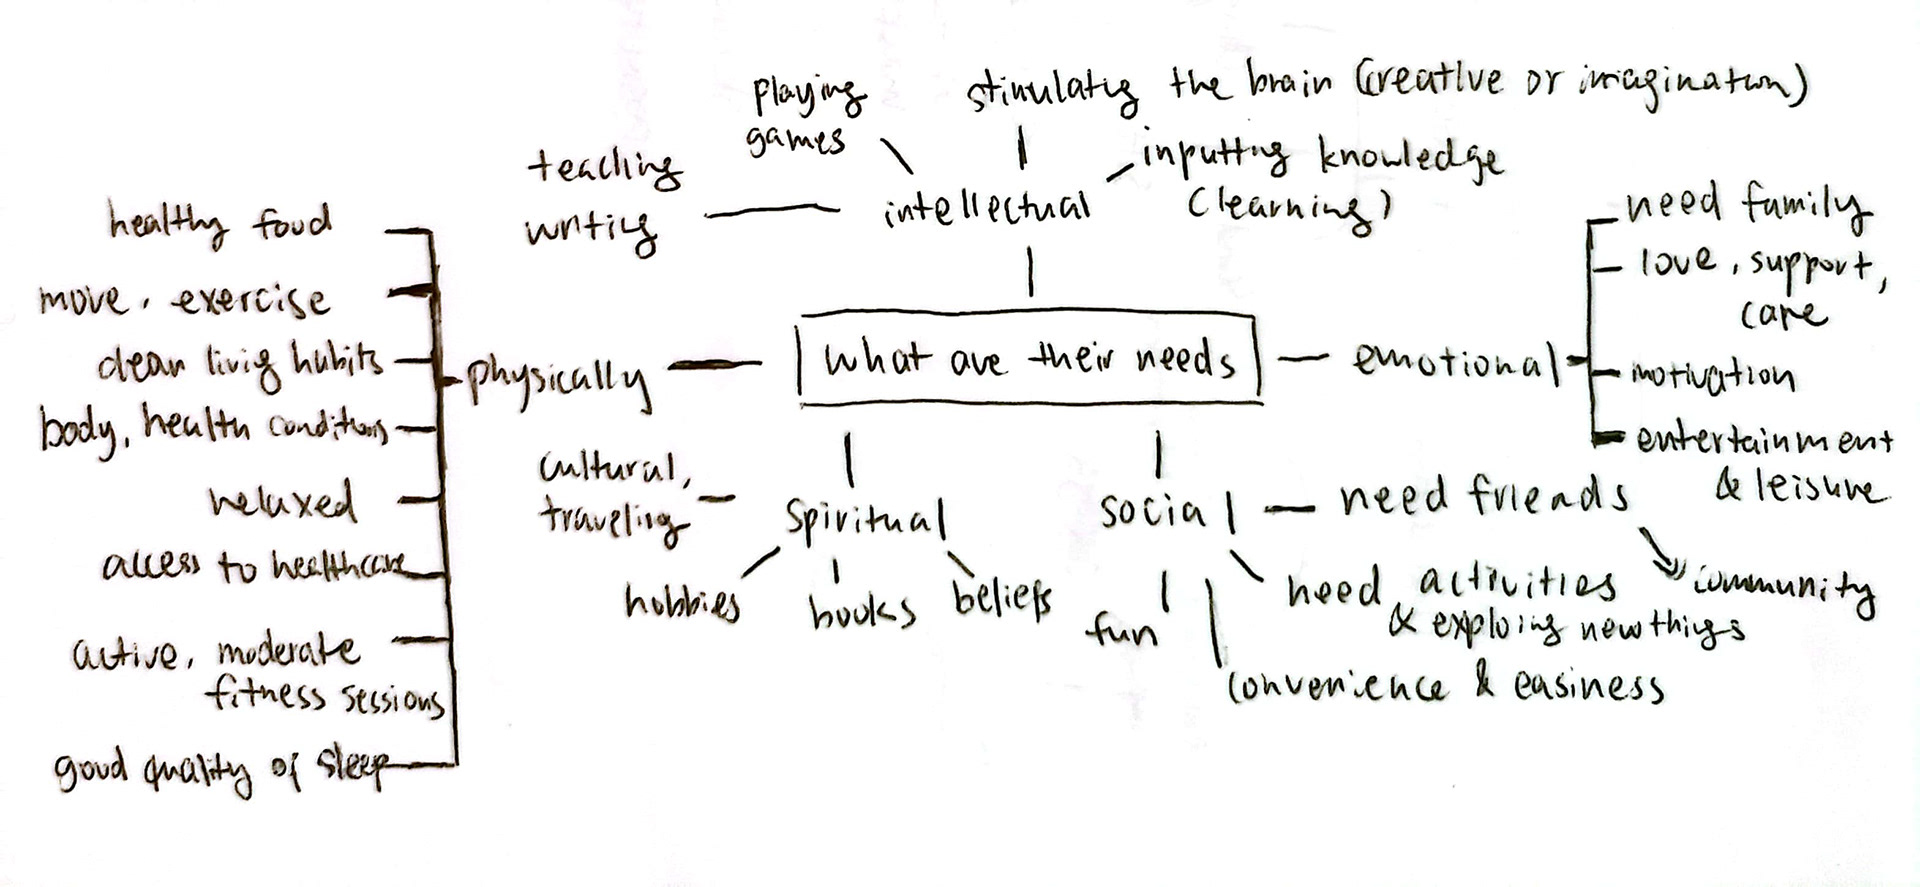 playing
games
stimulating the brain (creative or imagination)
inputting knowledge
(learning)
teaching
writing
intellectual
healthy food
move, exercise
clean living habits
body, health conditions
relaxed
access to healthcare
active, moderate
fitness sessions
good quality of sleep
physically
what are their needs
emotional
need family
love, support,
care
motivation
entertainment
& leisure
cultural,
traveling
spiritual
hobbies
books
beliefs
social
need friends
community
need activities
& exploring new things
fun
convenience & easiness